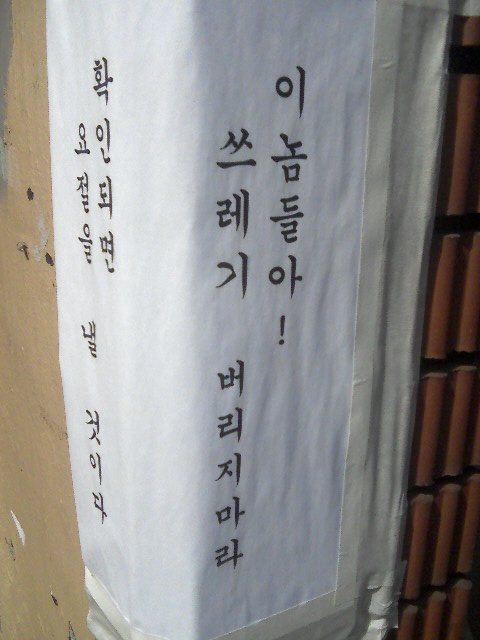 이놈들아!
쓰레기 버리지마라
확인되면
요절을 낼 것이다